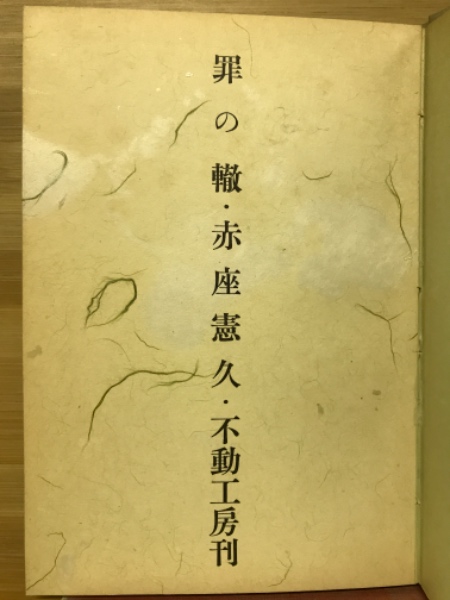 罪の轍・赤座憲久・不動工房刊